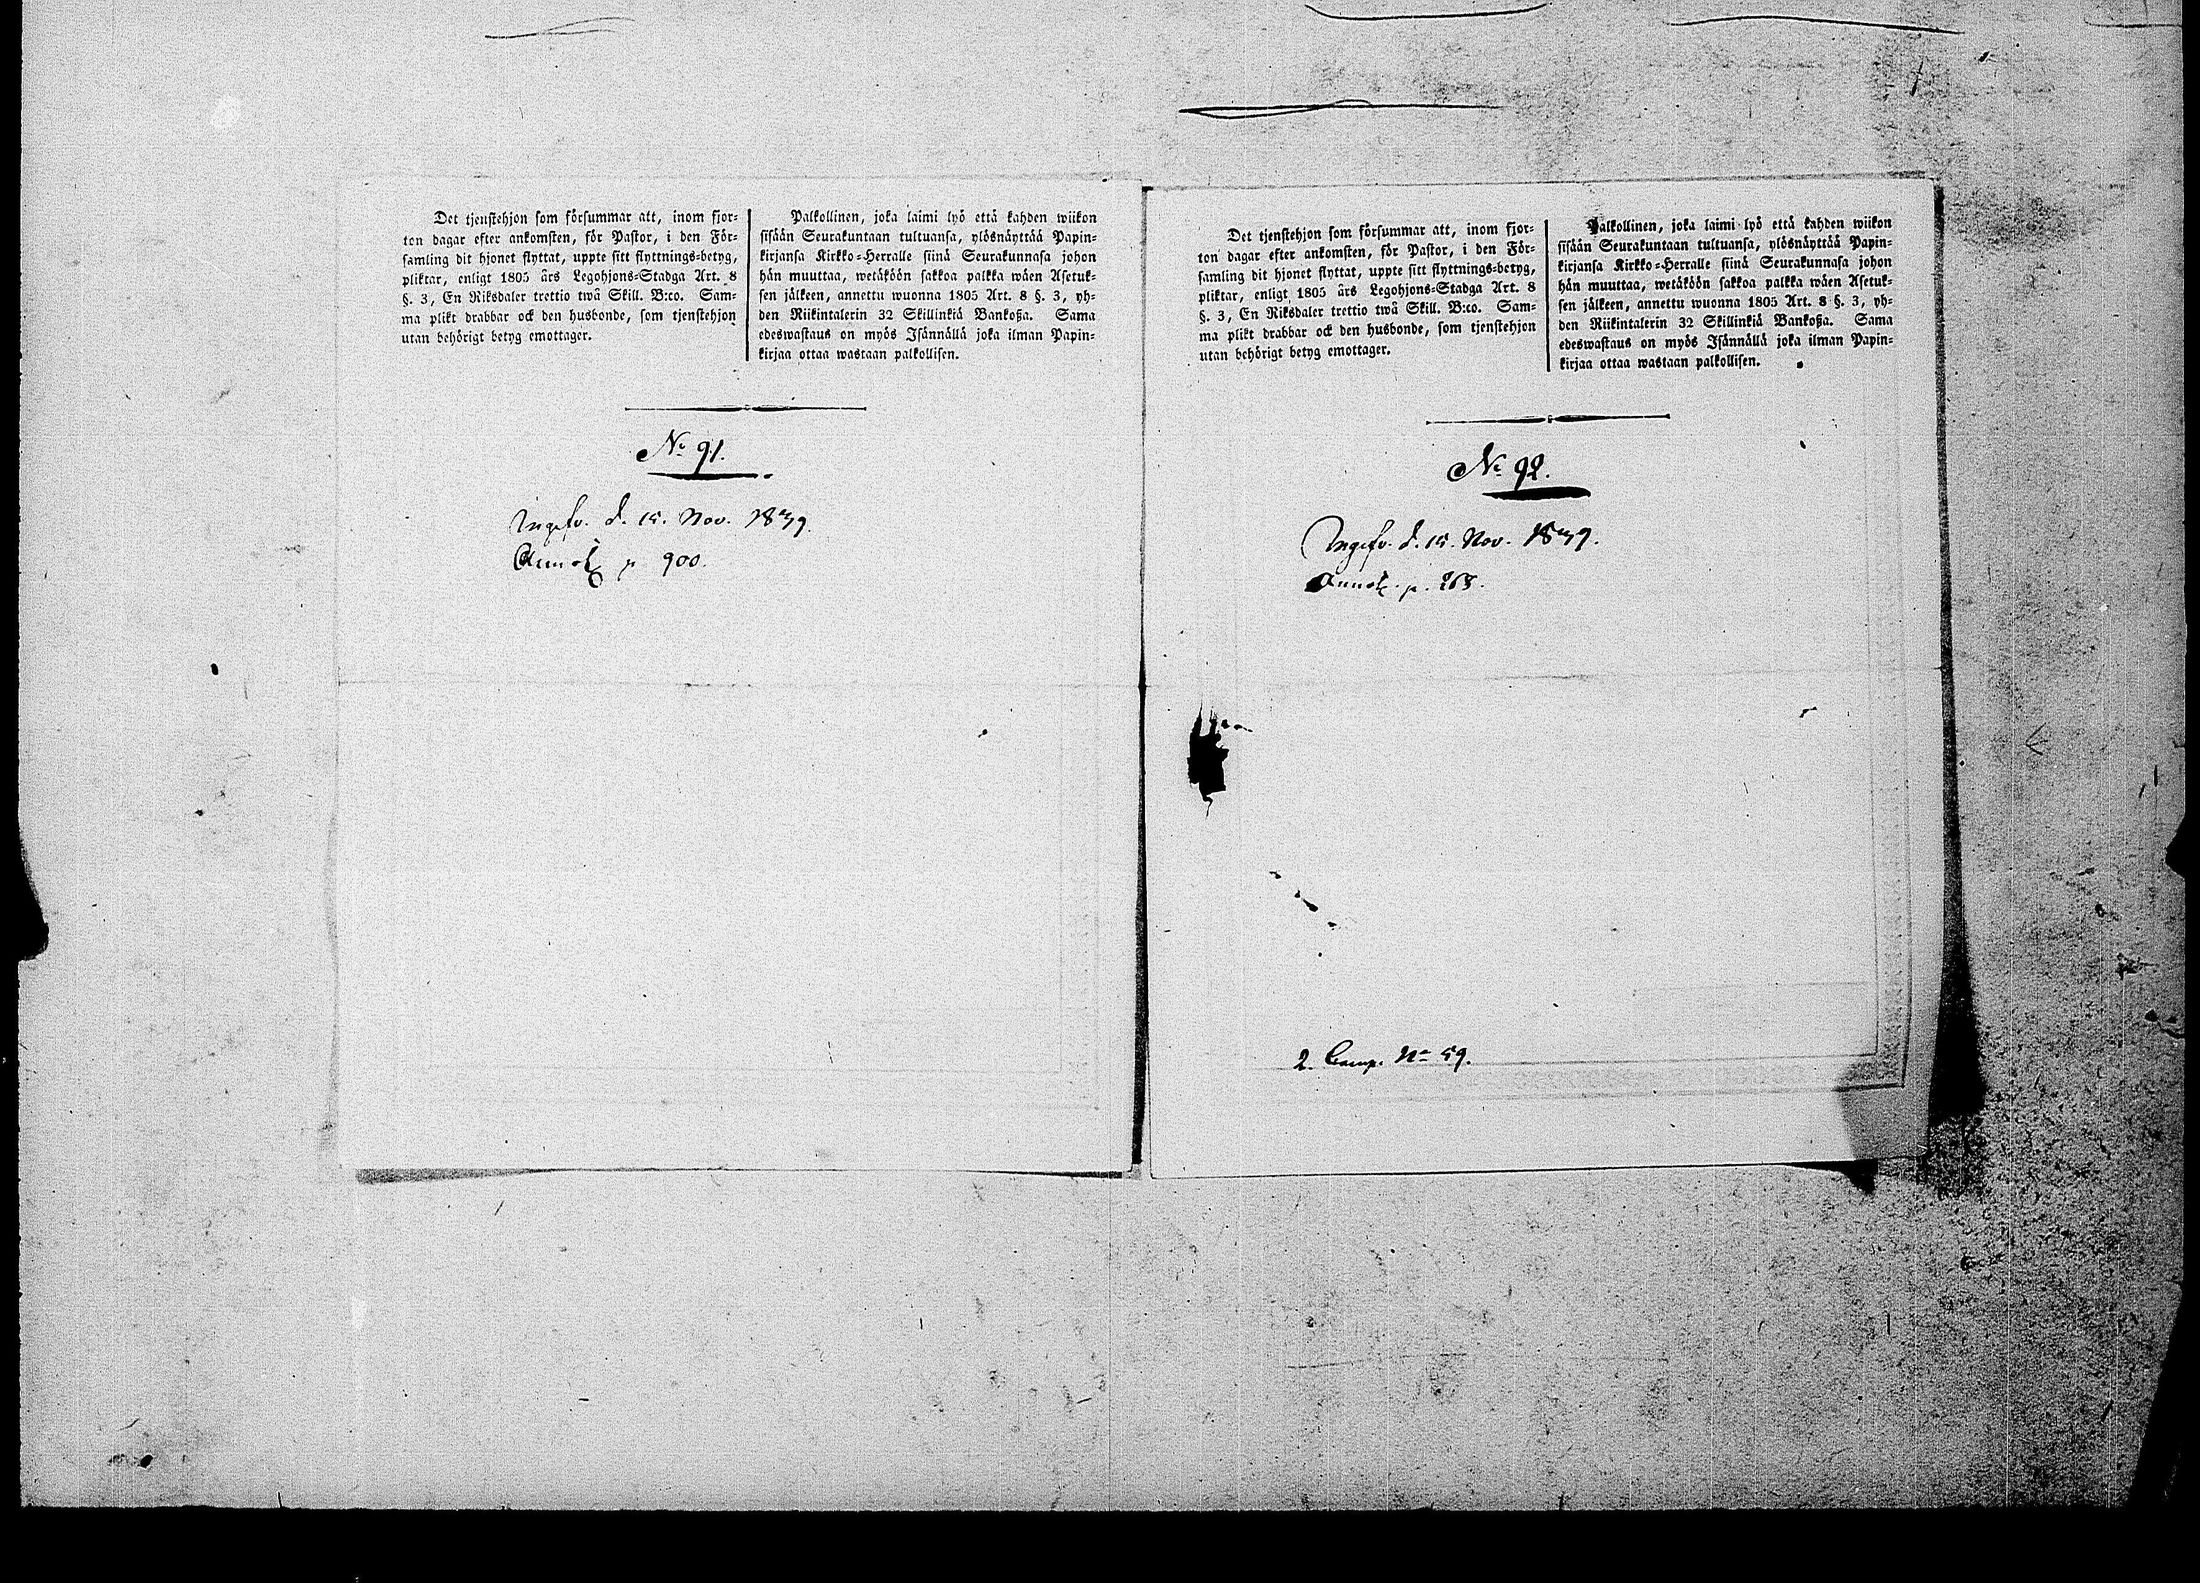 Det tjenstehjon som försummar att, inom fjor-
ton dagar efter ankomsten, för Pastor, i den För-
samling dit hjonet flyttat, uppte sitt flyttnings-betyg,
pliktar, enligt 1805 års Legohjons-Stadga Art. 8
§. 3, En Riksdaler trettio twå Skill. B:co. Sam-
ma plikt drabbar ock den husbonde, som tjenstehjon
utan behörigt betyg emottager.
Palkollinen, joka laimi lyö että kahden wiikon
sisään Seurakuntaan tultuansa, ylösnäyttää Papin-
kirjansa Kirkko-Herralle siinä Seurakunnasa johon
hän muuttaa, wetäköön sakkoa palkka wäen Asetuk-
sen jälkeen, annettu wuonna 1805 Art. 8 §. 3, yh-
den Riikintalerin 32 Skillinkiä Bankoßa. Sama
edeswastaus on myös Isännällä joka ilman Papin-
kirjaa ottaa wastaan palkollisen.
No 91.
d. 15. Nov. 1839.
Annot. p 900.
Det tjenstehjon som försummar att, inom fjor-
ton dagar efter ankomsten, för Pastor, i den För-
samling dit hjonet flyttat, uppte sitt flyttnings-betyg,
pliktar, enligt 1805 års Legohjons-Stadga Art. 8
§. 3, En Riksdaler trettio twå Skill. B:co. Sam-
ma plikt drabbar ock den husbonde, som tjenstehjon
utan behörigt betyg emottager.
Palkollinen, joka laimi lyö että kahden wiikon
sisään Seurakuntaan tultuansa, ylösnäyttää Papin-
kirjansa Kirkko-Herralle siinä Seurakunnasa johon
hän muuttaa, wetäköön sakkoa palkka wäen Asetuk-
sen jälkeen, annettu wuonna 1805 Art. 8 §. 3, yh-
den Riikintalerin 32 Skillinkiä Bankoßa. Sama
edeswastaus on myös Isännällä joka ilman Papin-
kirjaa ottaa wastaan palkollisen.
No 92.
d. 15. Nov. 1839.
Annot. p. 263.
2. Comp. No 59.